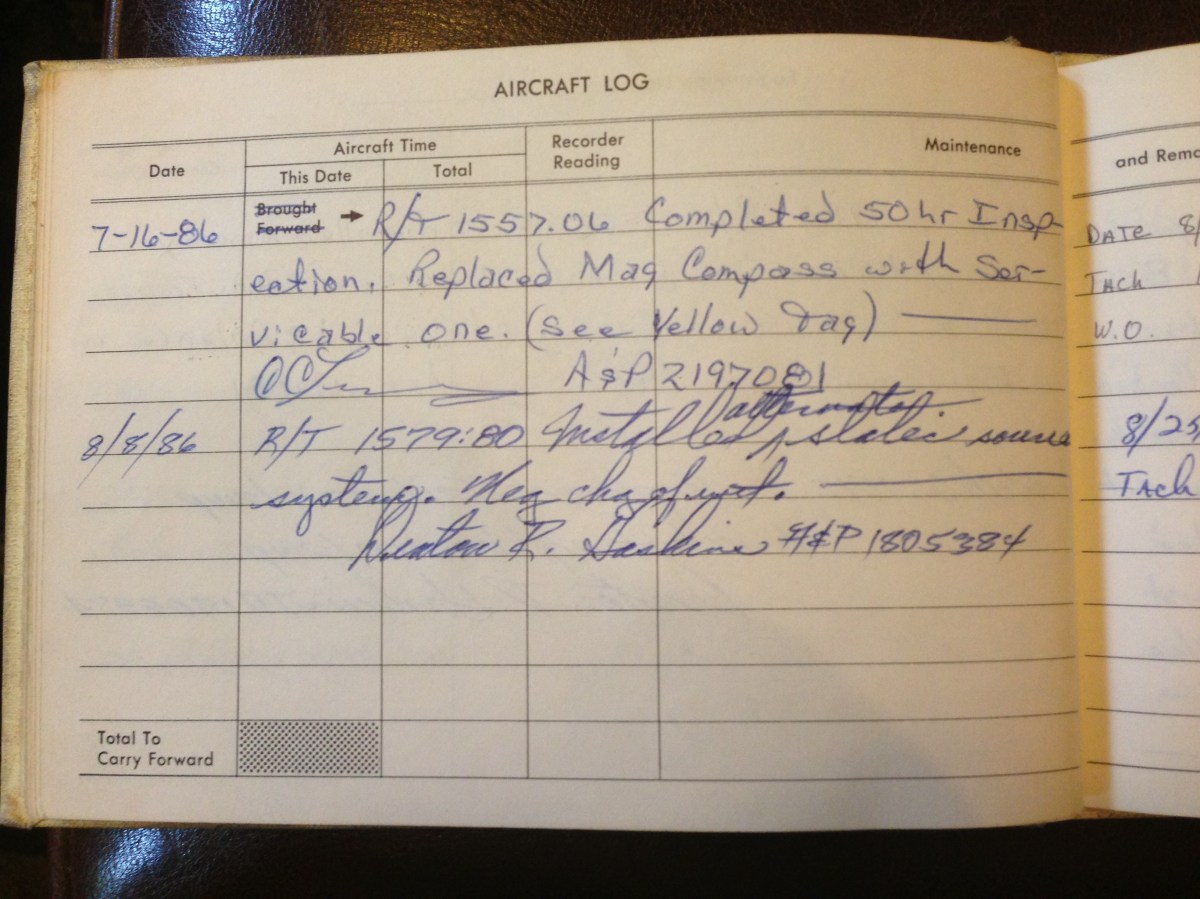 AIRCRAFT LOG
Date
Aircraft Time
This Date
Total
Recorder
Reading
Maintenance
and Rema
7-16-86 Brought Forward → R/T 1557.06 Completed 50hr Insp-
ection. Replaced Mag Compass with Ser-
vicable one. (See Yellow Tag)
A&P 2197081
alternate
8/8/86 R/T 1579:80 Installed static source
system.
R. A&P 1805384
Total To
Carry Forward
DATE 8/
TAch
W.O.
8/23
TAch